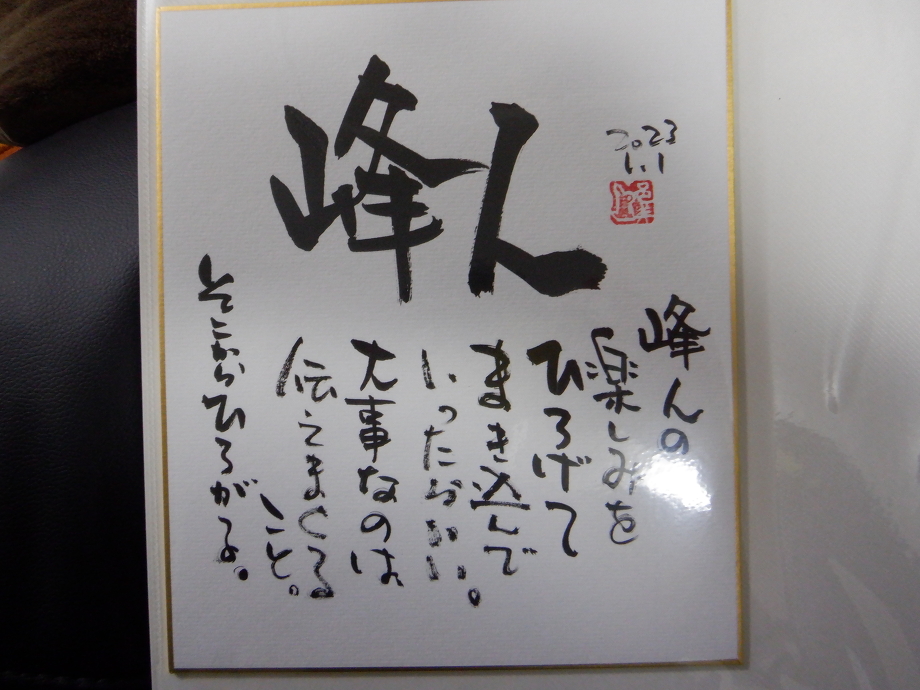 峰人
2023
1.1
峰んの
楽しみを
ひろげて
まき込んで
いったらいい。
大事なのは
伝えまくる
こと。
そこからひろがる。